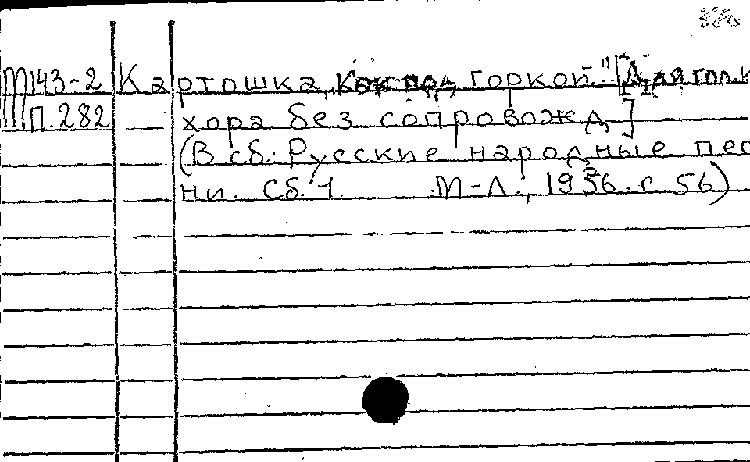 М143-2 Картошка „Как под горкой" [Для гол. и
П.282 хора без сопровожд.]
(В сб.: Русские народные пес
ни. Сб. 1 М-Л., 1936. с 56)